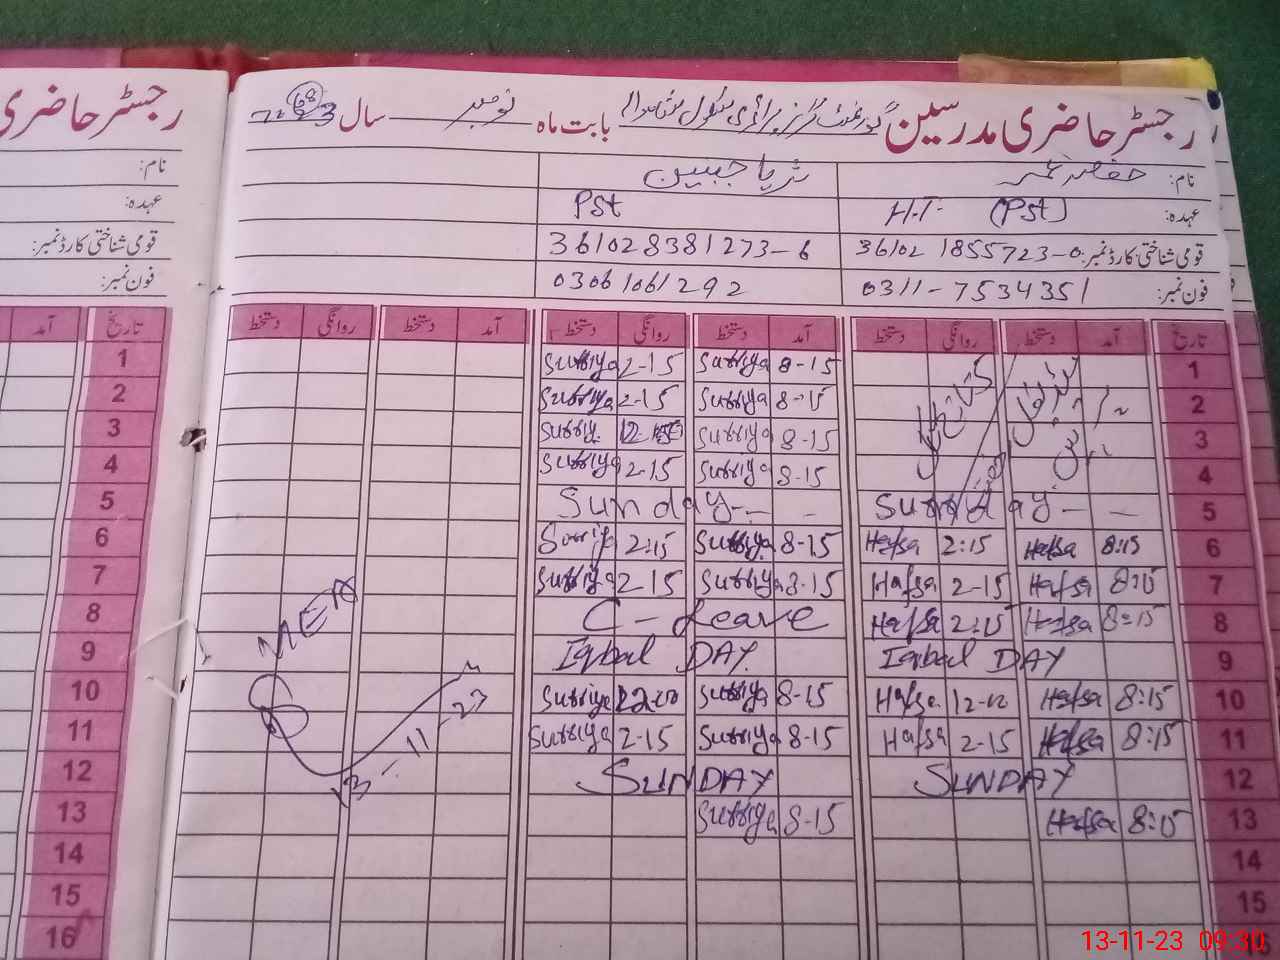 رجسٹر حاضری مدرسین گورنمنٹ گرلز پرائمری سکول بابت ماہ نومبر سال
رجسٹر حاضری
نام: حفصہ ثریا جبیں
نام:
عہدہ: H.T. (PST) PST
عہدہ:
قومی شناختی کارڈ نمبر: 36102 1855723-0 361028381273-6
قومی شناختی کارڈ نمبر:
فون نمبر: 0311-7534351 03061061292
فون نمبر:
تاریخ آمد دستخط روانگی دستخط آمد دستخط روانگی دستخط آمد دستخط روانگی دستخط
تاریخ آمد
1 8-15 Surriya 2-15 Surriya
2 8-15 Surriya 2-15 Surriya
3 8-15 Surriya Surriy
4 8-15 Surriya 2-15 Surriya
5 Sunday Sunday
6 8:15 Hafsa 2:15 Hafsa 8-15 Surriya 2:15 Surriya
7 8:15 Hafsa 2-15 Hafsa 8-15 Surriya 2-15 Surriya
8 8:15 Hafsa 2:15 Hafsa C-Leave
9 Iqbal DAY Iqbal DAY
10 8:15 Hafsa 12-00 Hafsa 8-15 Surriya 12-00 Surriya
11 8:15 Hafsa 2-15 Hafsa 8-15 Surriya 2-15 Surriya
12 SUNDAY SUNDAY
13 8:15 Hafsa 8-15 Surriya
14
15
1
2
3
4
5
6
7
8
9
10
11
12
13
14
15
16
MEA
13-11-23
13-11-23 09:30